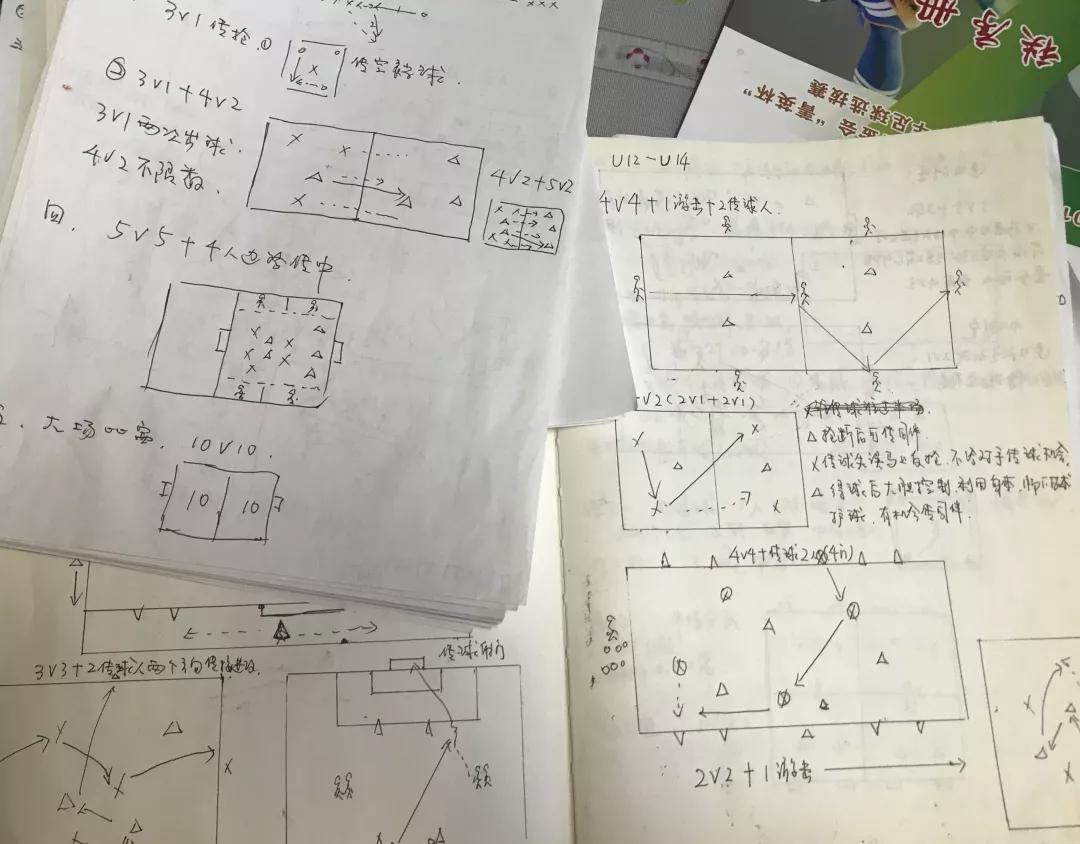 3V1传抢.①
传空接球.
② 3V1+4V2
3V1两次出球.
4V2不限数.
4V2+5V2
四. 5V5+4人边路传中.
大场比赛. 10V10.
10 10
U12-U14
4V4+1游击+2传球人.
V2(2V1+2V1)
△抢断后可传同伴.
X传球失误马上反抢.不给对手传球机会.
△得球后大胆控制.利用身体.
护球.有机会传同伴.
4V4+传球2人(4门)
2V2+1游击
3V3+2传球人两个方向传接进攻.
传球射门
秩序册
金会"菁英杯"
年足球选拔赛